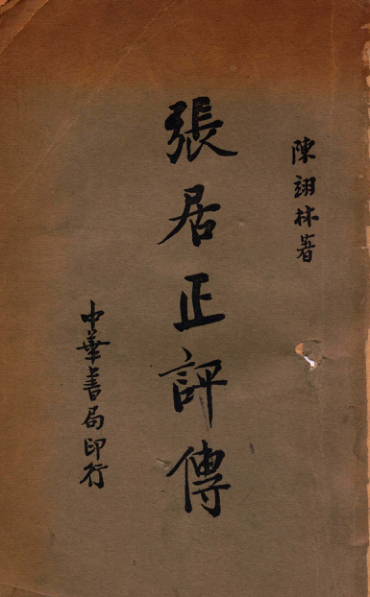 陳翊林著
張居正評傳
中華書局印行